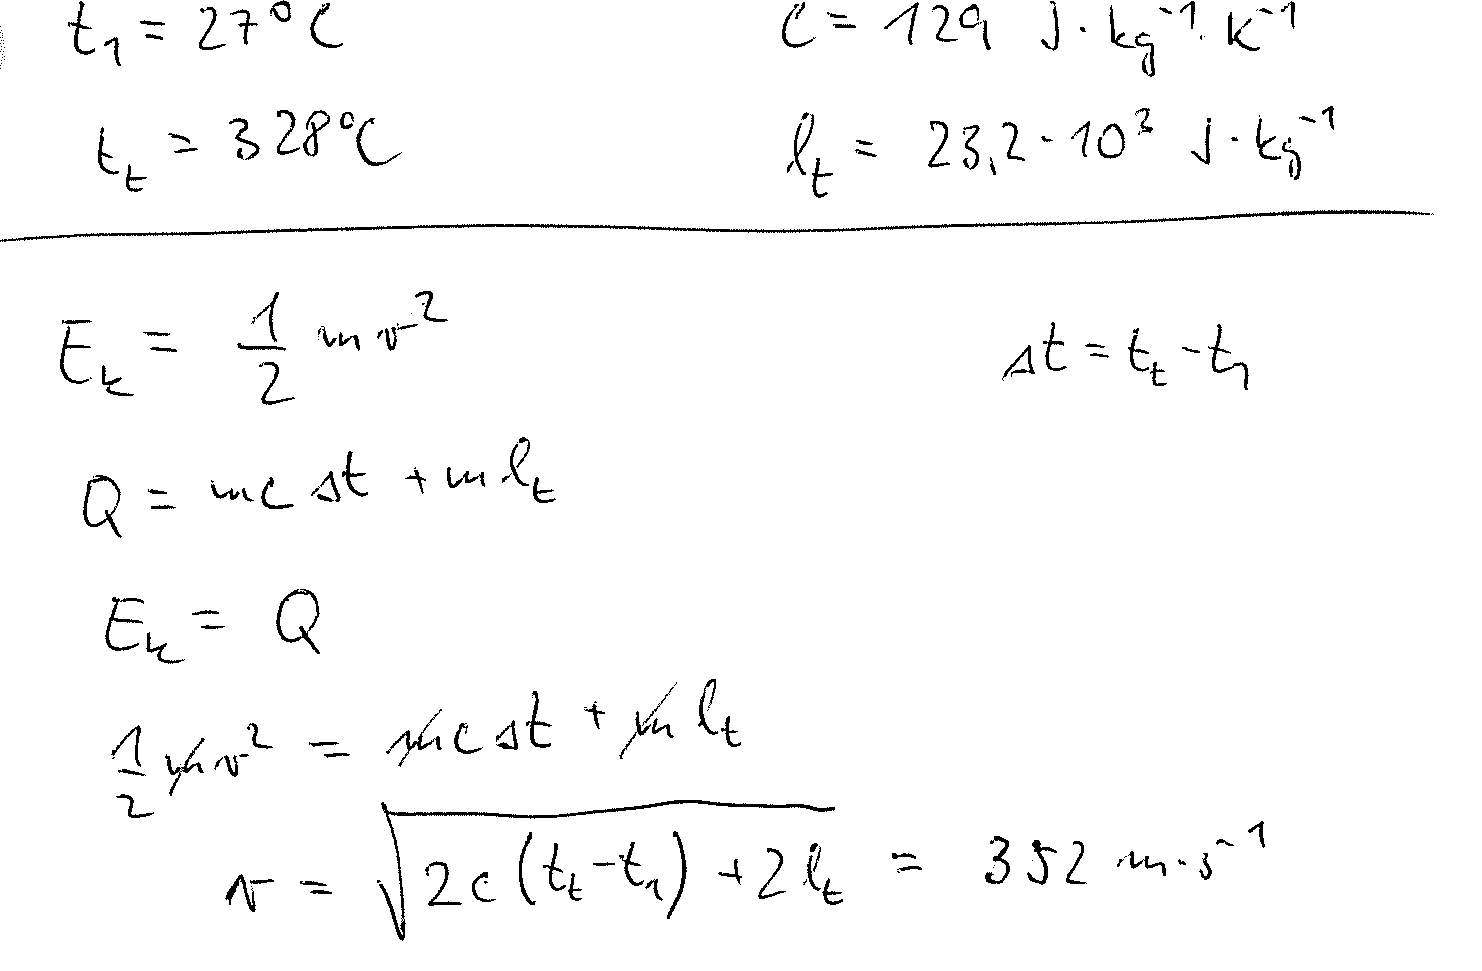 t₁ = 27°C c = 129 J·kg⁻¹·K⁻¹
t_t = 328°C l_t = 23,2·10³ J·kg⁻¹
E_k = 1/2 mv² Δt = t_t - t₁
Q = mcΔt + ml_t
E_k = Q
1/2 mv² = mcΔt + ml_t
v = √(2c(t_t - t₁) + 2l_t) = 352 m·s⁻¹